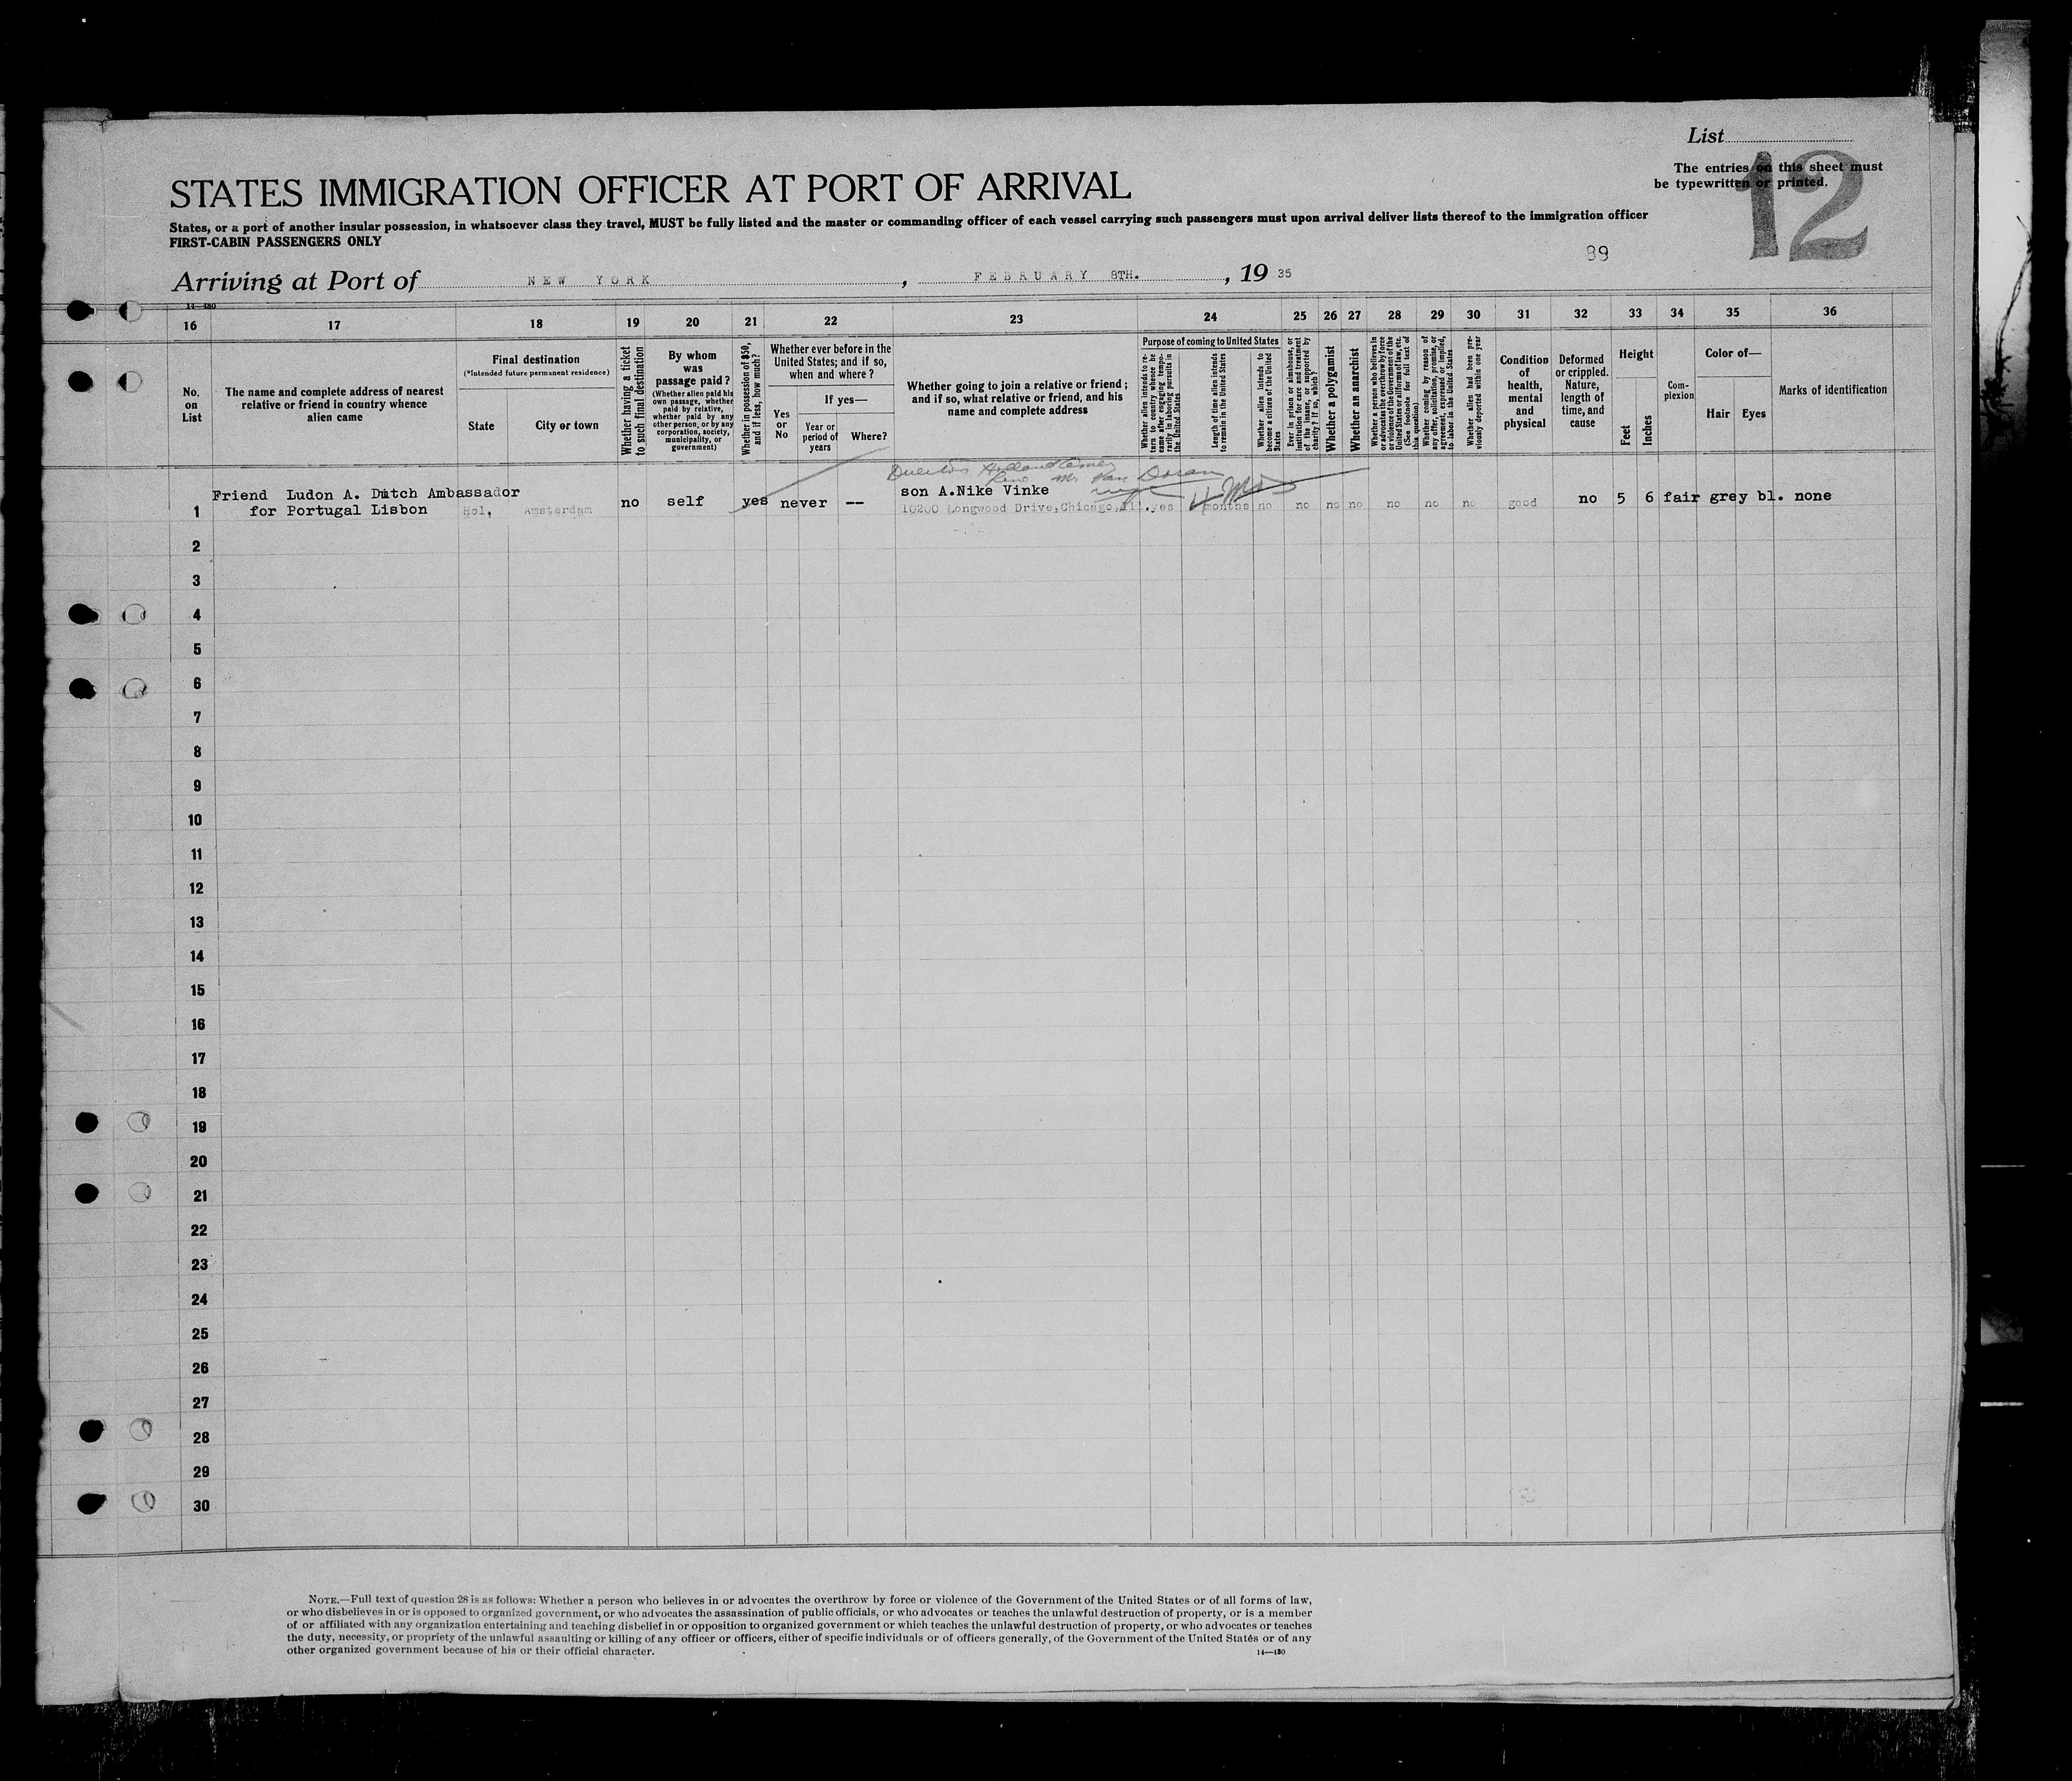 List
12
The entries on this sheet must
be typewritten or printed.
STATES IMMIGRATION OFFICER AT PORT OF ARRIVAL
States, or a port of another insular possession, in whatsoever class they travel, MUST be fully listed and the master or commanding officer of each vessel carrying such passengers must upon arrival deliver lists thereof to the immigration officer
FIRST-CABIN PASSENGERS ONLY
89
Arriving at Port of NEW YORK, FEBRUARY 8TH., 19 35
14—430
16 17 18 19 20 21 22 23 24 25 26 27 28 29 30 31 32 33 34 35 36
No. on List
The name and complete address of nearest
relative or friend in country whence
alien came
Final destination
(*Intended future permanent residence)
State
City or town
Whether having a ticket
to such final destination
By whom
was
passage paid?
(Whether alien paid his
own passage, whether
paid by relative,
whether paid by any
other person, or by any
corporation, society,
municipality, or
government)
Whether in possession of $50,
and if less, how much?
Whether ever before in the
United States; and if so,
when and where?
Yes
or
No
If yes—
Year or
period of
years
Where?
Whether going to join a relative or friend;
and if so, what relative or friend, and his
name and complete address
Purpose of coming to United States
Whether alien intends to re-
turn to country whence he
came after engaging tempo-
rarily in laboring pursuits in
the United States
Length of time alien intends
to remain in the United States
Whether alien intends to
become a citizen of the United
States
Ever in prison or almshouse, or
institution for care and treatment
of the insane, or supported by
charity? If so, which?
Whether a polygamist
Whether an anarchist
Whether a person who believes in
or advocates the overthrow by force
or violence of the Government of the
United States or all forms of law, etc.
(See footnote for full text of
this question)
Whether coming by reason of
any offer, solicitation, promise, or
agreement, expressed or implied,
to labor in the United States
Whether alien had been pre-
viously deported within one year
Condition
of
health,
mental
and
physical
Deformed
or crippled.
Nature,
length of
time, and
cause
Height
Feet
Inches
Com-
plexion
Color of—
Hair
Eyes
Marks of identification
Holland
Mr. Van Doran
Friend Ludon A. Dutch Ambassador
son A.Nike Vinke
4 Mos
1 for Portugal Lisbon Hol. Amsterdam no self yes never -- 10200 Longwood Drive,Chicago,Ill. yes months no no no no no no no good no 5 6 fair grey bl. none
2
3
4
5
6
7
8
9
10
11
12
13
14
15
16
17
18
19
20
21
22
23
24
25
26
27
28
29
30
NOTE.—Full text of question 28 is as follows: Whether a person who believes in or advocates the overthrow by force or violence of the Government of the United States or of all forms of law,
or who disbelieves in or is opposed to organized government, or who advocates the assassination of public officials, or who advocates or teaches the unlawful destruction of property, or is a member
of or affiliated with any organization entertaining and teaching disbelief in or opposition to organized government or which teaches the unlawful destruction of property, or who advocates or teaches
the duty, necessity, or propriety of the unlawful assaulting or killing of any officer or officers, either of specific individuals or of officers generally, of the Government of the United States or of any
other organized government because of his or their official character.
14—430